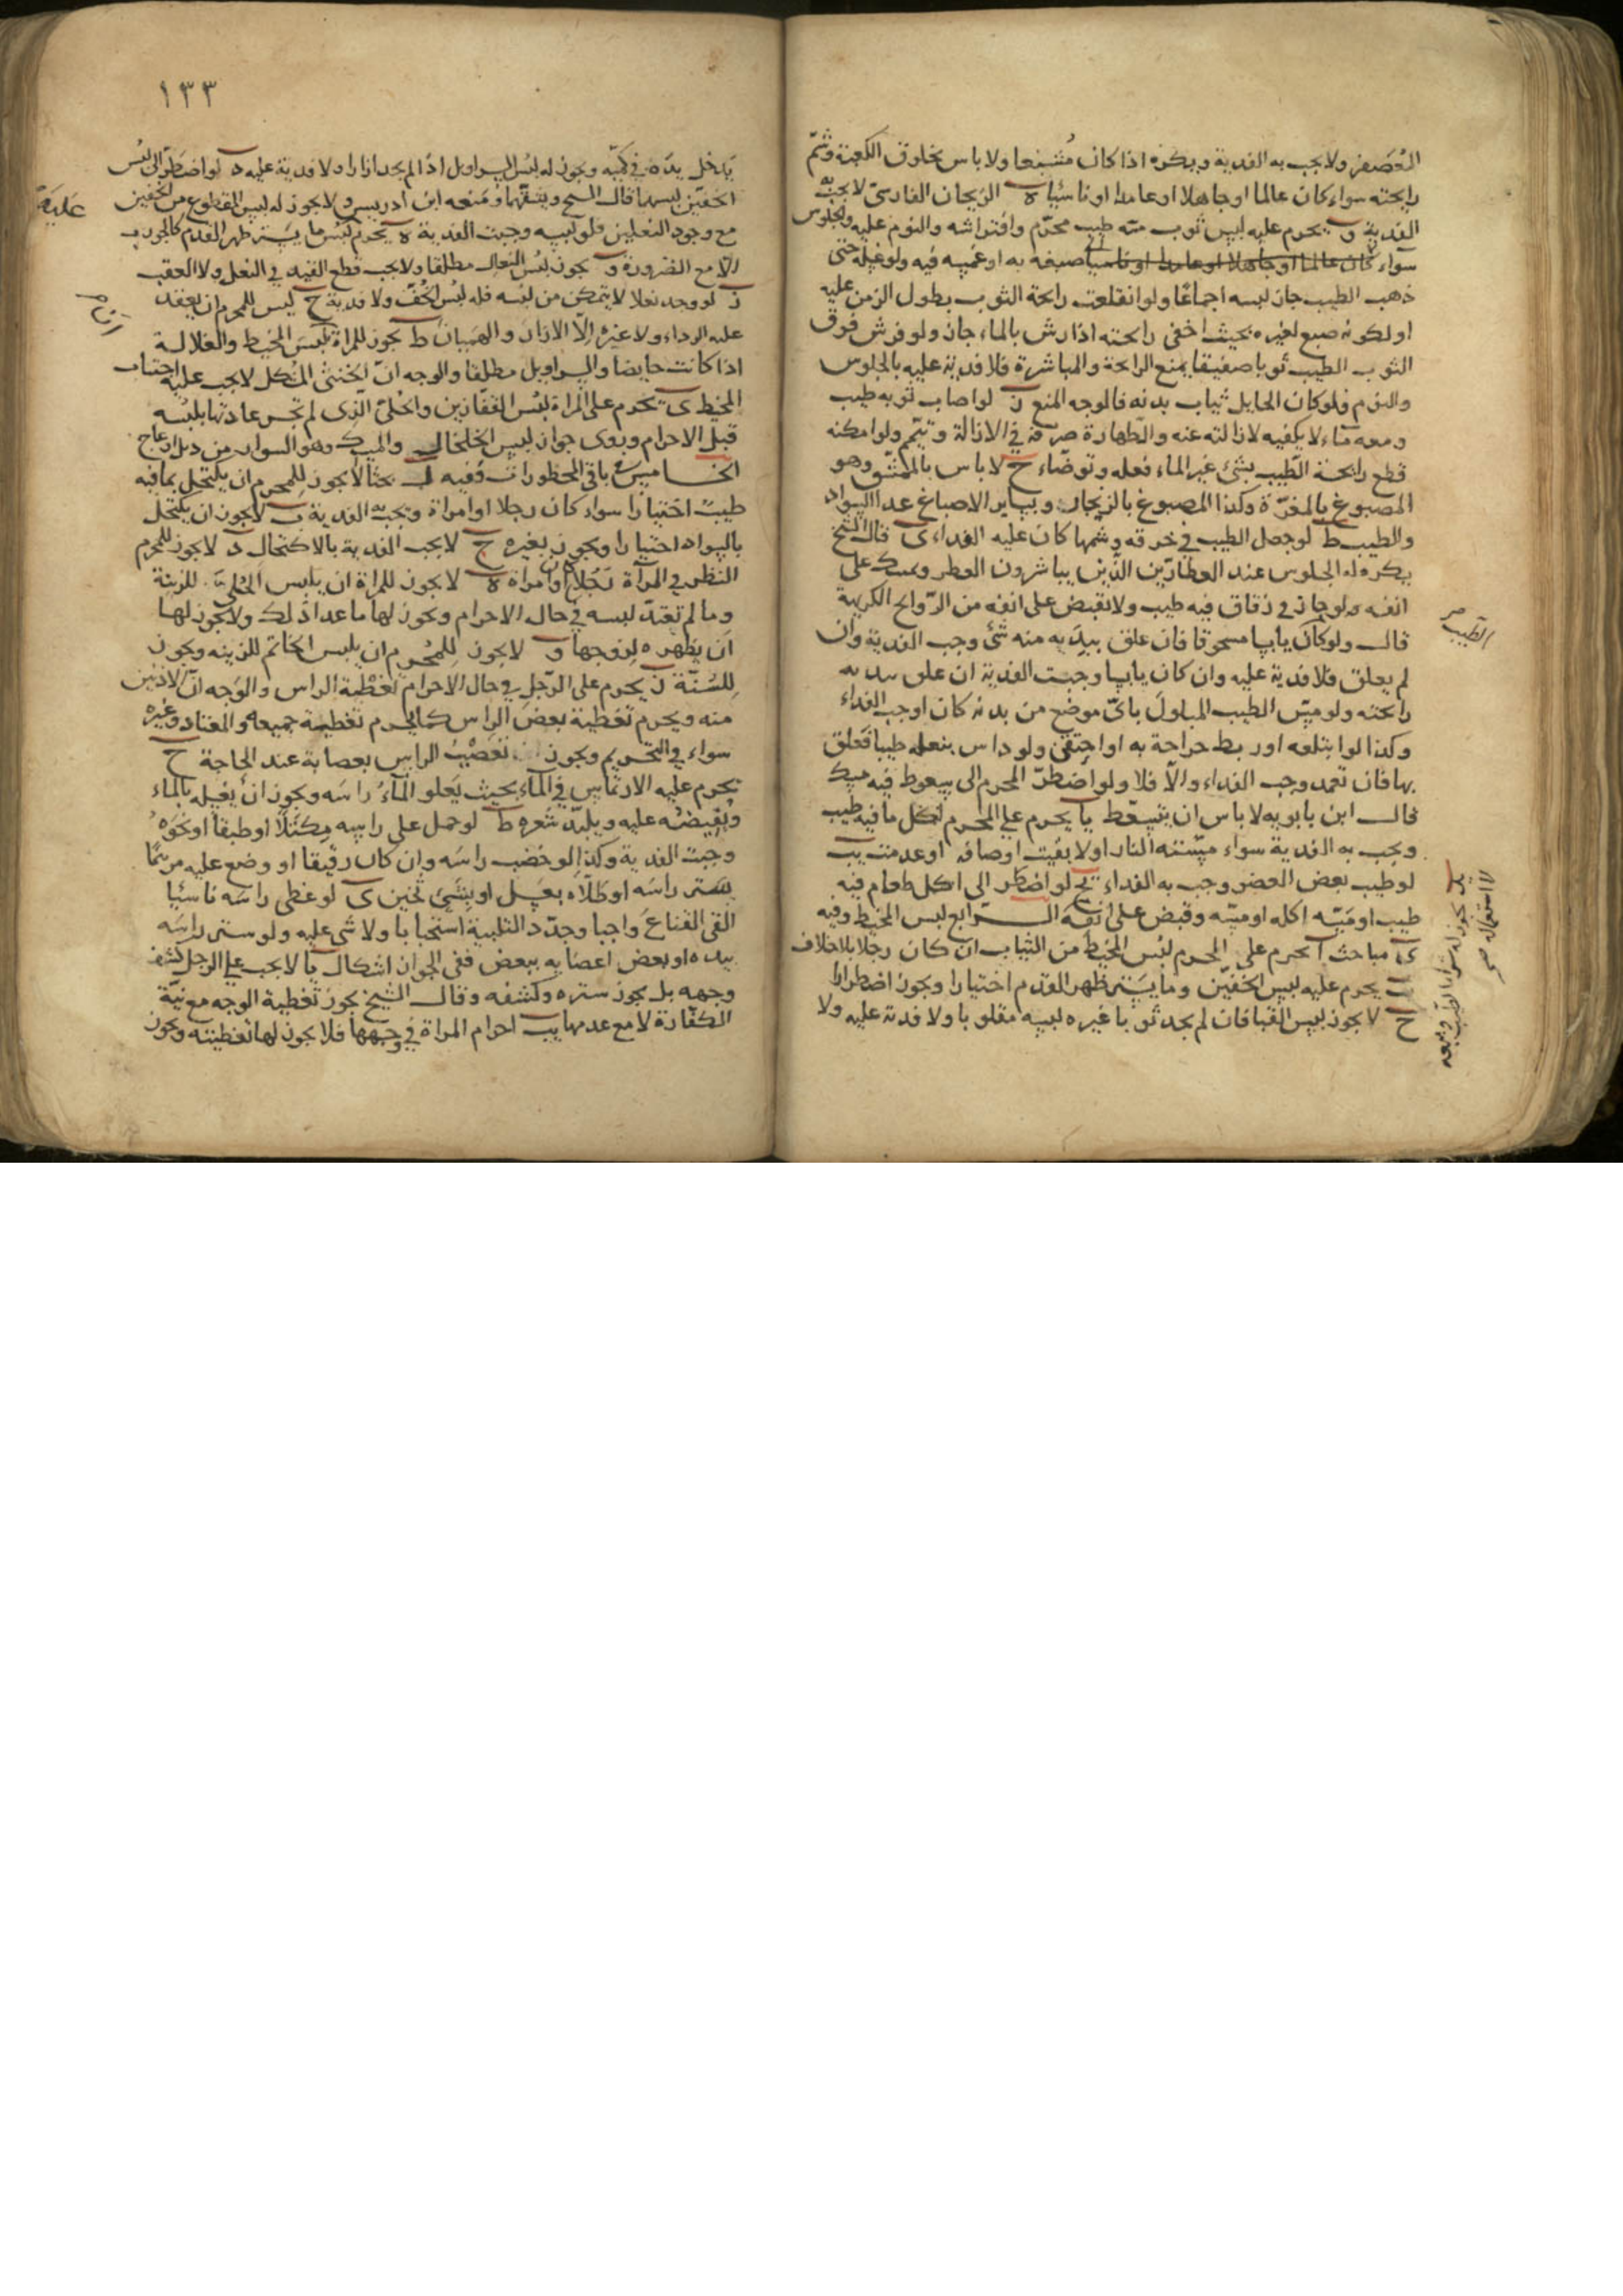 المُعَصفر ولا يجب به الفدية ويكره اذا كان مُشبعا ولا باس بخلوق الكعبة وشمّ
رايحته سواء كان عالما او جاهلا او عامدا او ناسيا ه الريحان الفارسىّ لا يجب به
الفدية و يحرم عليه لبس ثوب مسّه طيب محرّم وافتراشه والنوم عليه والجلوس
سواء كان عالما او جاهلا او عامدا او ناسيا صبغه به او غمسه فيه ولو غسله حتى
ذهب الطيب جاز لبسه اجماعًا ولو انقلعت رائحة الثوب بطول الزمن عليه
او لكونه صبع لغيره بحيث اخفى رائحته اذا رش بالماء جاز ولو فرش فوق
الثوب الطيب ثوبا صفيقا يمنع الرايحة والمباشرة فلا فدية عليه بالجلوس
والنوم ولو كان الحايل ثياب بدنه فالوجه المنع ز لو اصاب ثوبه طيب
ومعه ماء لا يكفيه لازالته عنه والطهارة صرفه في الازالة وتيمّم ولو امكنه
قطع رائحة الطيب بشئ غير الماء فعله وتوضّاء ح لا باس بالممشّق وهو
المصبوغ بالمغرة وكذا المصبوغ بالزنجار وبساير الاصباغ عدا السواد
والطيب ط لو جعل الطيب في خرقه وشمها كان عليه الفداء ى قال الشيخ
يكره له الجلوس عند العطّارين الذين يباشرون العطر ويمسك على
انفه ولو جاز في زقاق فيه طيب ولا يقبض على انفه من الروايح الكريهة
قال ولو كان يابسا مسحوقا فان علق بيده منه شئ وجب الفدية وان
لم يعلق فلا فدية عليه وان كان يابسا وجبت الفدية ان علق بيديه
رائحته ولو مسّ الطيب المبلول باىّ موضع من بدنه كان اوجب الفداء
وكذا لو ابتلعه او ربط جراحة به او احتقن ولو داس بنعله طيبا فعلق
بها فان تعمد وجب الفداء والّا فلا ولو اضطرّ المحرم الى سعوط فيه مسك
قال ابن بابويه لا باس ان يتسعّط يا يحرم على المحرم اكل ما فيه طيب
ويجب به الفدية سواء مسّته النار او لا بقيت اوصافه او عدمت يب
لو طيب بعض العضو وجب به الفداء يج لو اضطر الى اكل طعام فيه
طيب او مَسّه اكله او مسّه وقبض على انفه الـرابع لبس المخيط وفيه
ى مباحث ا يحرم على المحرم لبس المخيط من الثياب ان كان رجلا بلا خلاف
ب يحرم عليه لبس الخفّين وما يستر ظهر القدم اختيارا ويجوز اضطرارا
ج لا يجوز لبس القبا فان لم يجد ثوبا غيره لبسه مقلوبا ولا فدية عليه ولا
الطيب صح
يد يجوز له شراء الطيب وبيعه
لا استعماله صح
١٣٣
يدخل يده في كمّه ويجوز له لبس السراويل اذا لم يجد ازارا ولا فدية عليه د لو اضطر الى لبس
الخفين لبسهما قال الشيخ ويشقهما ومنعه ابن ادريس ولا يجوز له لبس المقطوع من الخفين
مع وجود النعلين فلو لبسه وجبت الفدية ه يحرم لبس ما يستر ظهر القدم كالجورب
الّا مع الضرورة و يجوز لبس النعال مطلقا ولا يجب قطع القيد في النعل ولا العقب
ز لو وجد نعلا لا يتمكن من لبسه فله لبس الخفّ ولا فدية ح ليس للمحرم ان يعقد
عليه الرداء ولا غيره الّا الازار والهميان ط يجوز للمراة لبس المخيط والغلالة
اذا كانت حايضا والسراويل مطلقا والوجه انّ الخنثى المشكل لا يجب عليه اجتناب
المخيط ى يحرم على المراة لبس القفازين والحلىّ الذى لم تجر عادتها بلبسه
قبل الاحرام وروى جواز لبس الخلخال والمسك وهو السوار من ذبل او عاج
الخـامس باقى المحظورات وفيه لب بحثا ا لا يجوز للمحرم ان يكتحل بما فيه
طيب اختيارا سواء كان رجلا او امراة وتجب به الفدية ب لا يجوز ان يكتحل
بالسواد اختيارا ويجوز بغيره ج لا يجب الفدية بالاكتحال د لا يجوز للمحرم
النظر في المرآة رجلا كان او امراة ه لا يجوز للمراة ان يلبس الحُلىّ للزينة
وما لم تعتد لبسه في حال الاحرام ويجوز لها ما عدا ذلك ولا يجوز لها
ان يظهره لزوجها و لا يجوز للمحرم ان يلبس الخاتم للزينه ويجوز
للسُنّة ز يحرم على الرّجل في حال الاحرام تغطية الراس والوجه انّ الاذنين
منه ويحرم تغطية بعض الراس كما يحرم تغطية جميعه والمعتاد وغيره
سواء في التحريم ويجوز تعصيب الراس بعصابة عند الحاجة ح
يحرم عليه الارتماس في الماء بحيث يعلو الماء راسه ويجوز ان يغسله بالماء
ويفيضه عليه ويلبّد شعره ط لو حمل على راسه مكتلا او طبقا او نحوه
وجبت الفدية وكذا لو خضب راسه وان كان رقيقا او وضع عليه مرهمًا
يستر راسه او طلّاه بعسل او بشئ ثخين ى لو غطى راسه ناسيا
القى القناع واجبا وجدّد التلبية استحبابا ولا شئ عليه ولو ستر راسه
بيده او بعض اعضايه ببعض ففى الجواز اشكال يا لا يجب على الرجل كشف
وجهه بل يجوز ستره وكشفه وقال الشيخ يجوز تغطية الوجه مع نيّة
الكفّارة لا مع عدمها يب احرام المراة في وجهها فلا يجوز لها تغطيته ويجوز
عليه